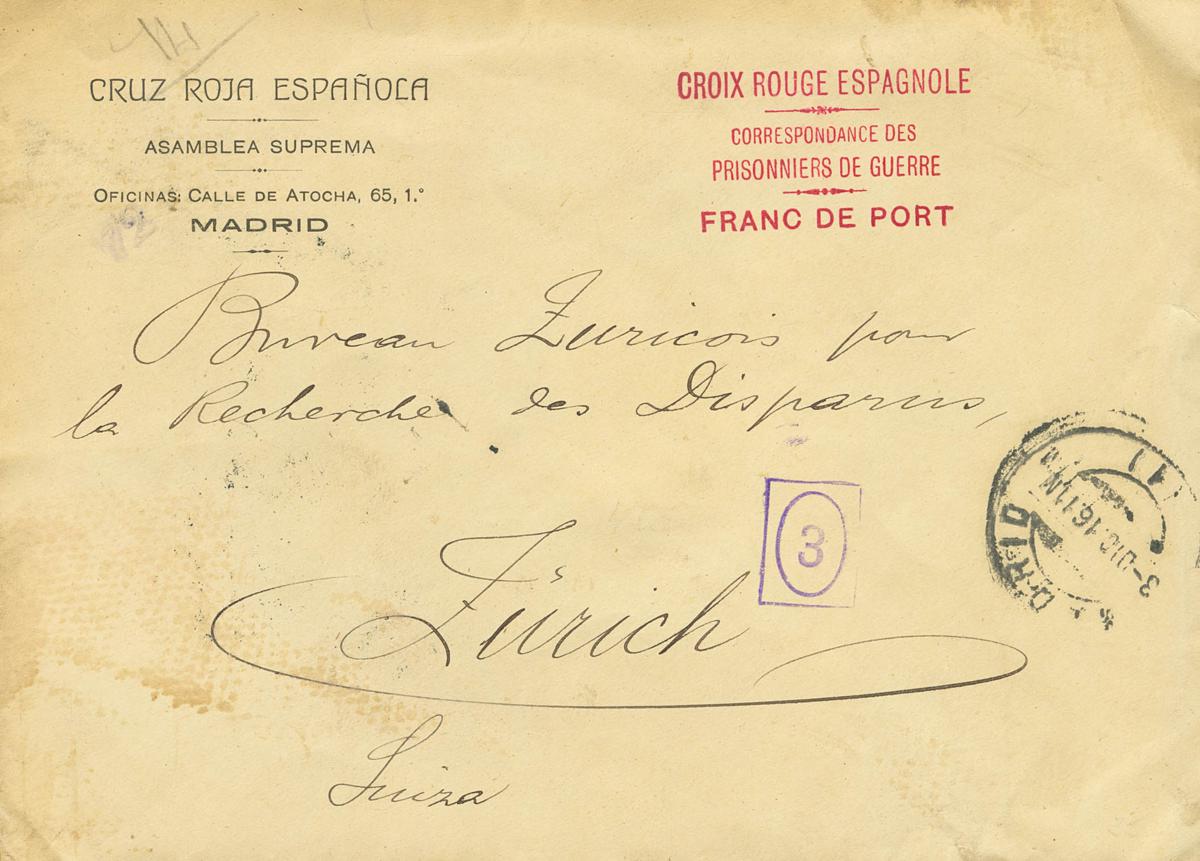 CRUZ ROJA ESPAÑOLA
ASAMBLEA SUPREMA
OFICINAS: CALLE DE ATOCHA, 65, 1.°
MADRID
CROIX ROUGE ESPAGNOLE
CORRESPONDANCE DES
PRISONNIERS DE GUERRE
FRANC DE PORT
Bureau Zuricois pour
la Recherche des Disparus,
3
Zürich
Suiza
3-DIC.16.11M